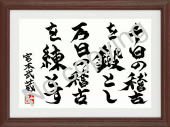 千日の稽古
を鍛とし
万日の稽古
を練とす
宮本武蔵